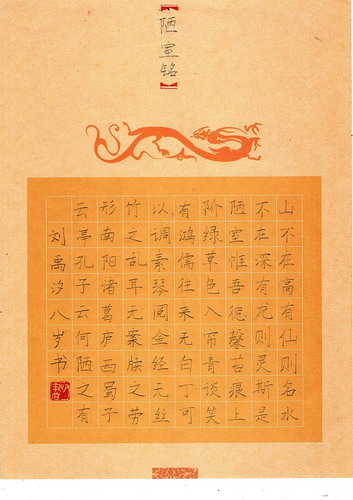 【陋室铭】
山不在高有仙则名水
不在深有龙则灵斯是
陋室惟吾德馨苔痕上
阶绿草色入帘青谈笑
有鸿儒往来无白丁可
以调素琴阅金经无丝
竹之乱耳无案牍之劳
形南阳诸葛庐西蜀子
云亭孔子云何陋之有
刘禹汐八岁书